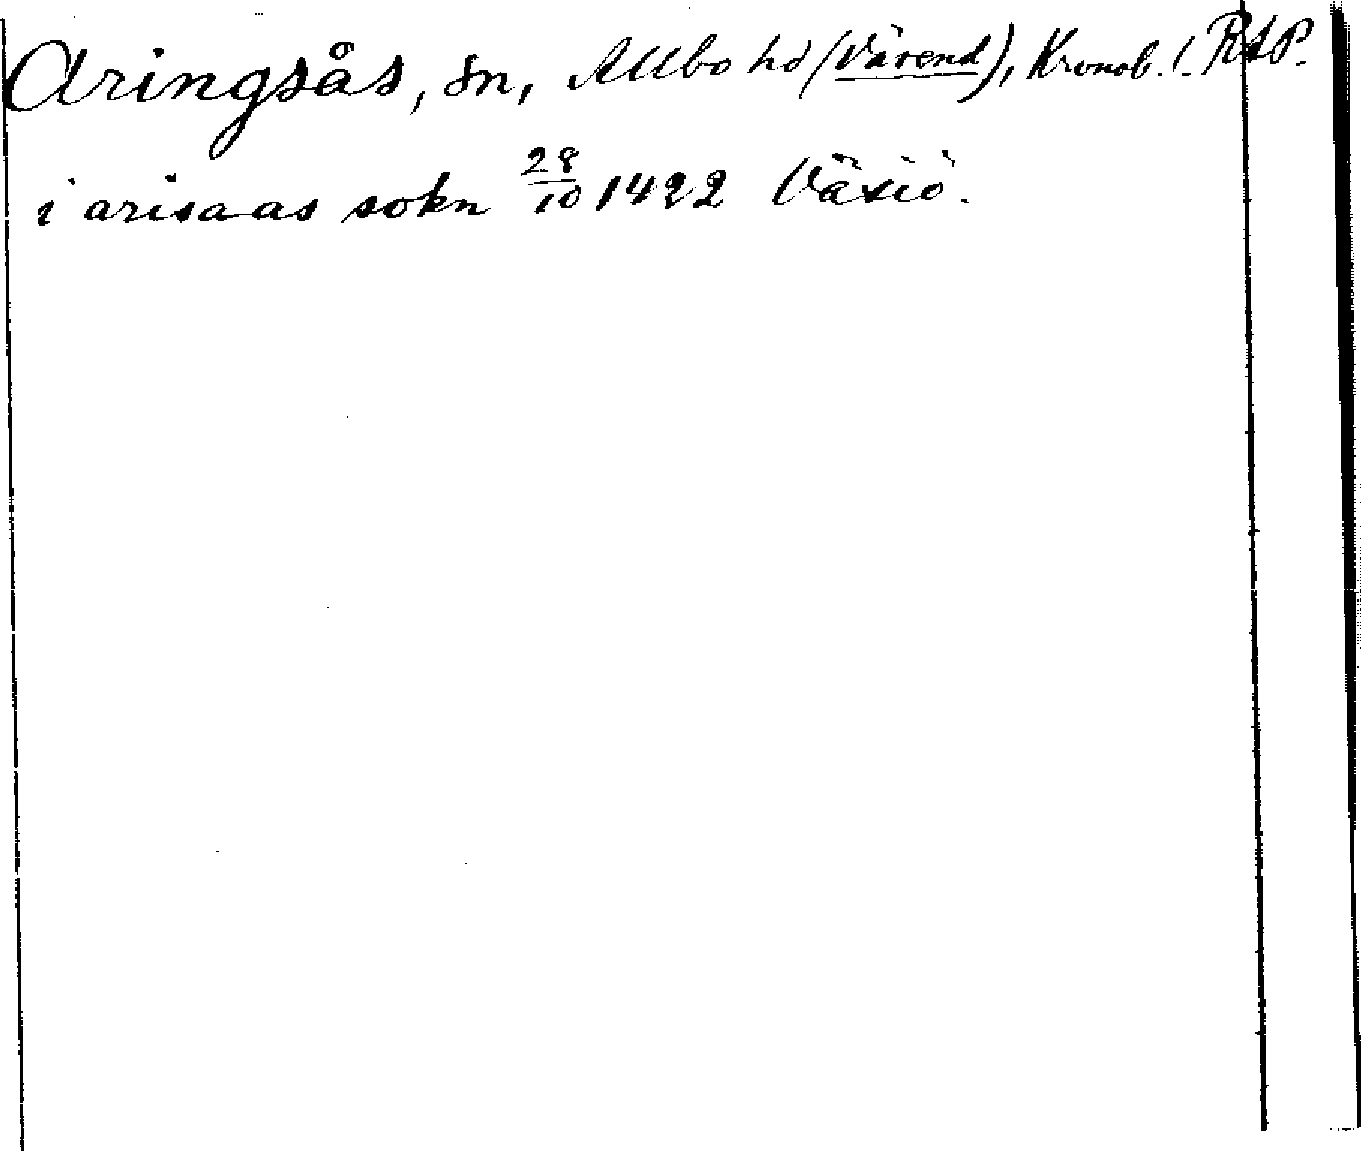 Aringsås, sn, Allbo hd (Värend), Kronob. l. RAP.
i arisaas sokn 28/10 1422 Växiö.